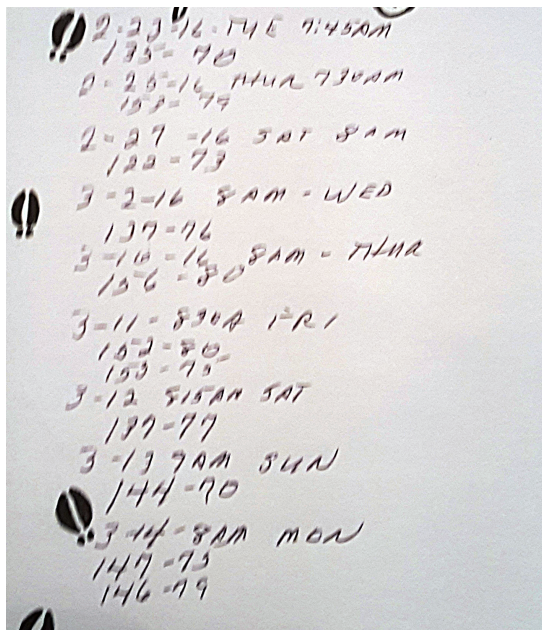 2-23-16-TUE 7:45AM
135-70
2-25-16 THUR 730AM
153-79
2-27-16 SAT 8AM
122-73
3-2-16 8AM-WED
137-76
3-10-16 8AM-THUR
156-80
3-11-830A FRI
152-80
153-75
3-12 815AM SAT
137-77
3-13 9AM SUN
144-70
3-14-8AM MON
147-75
146-79